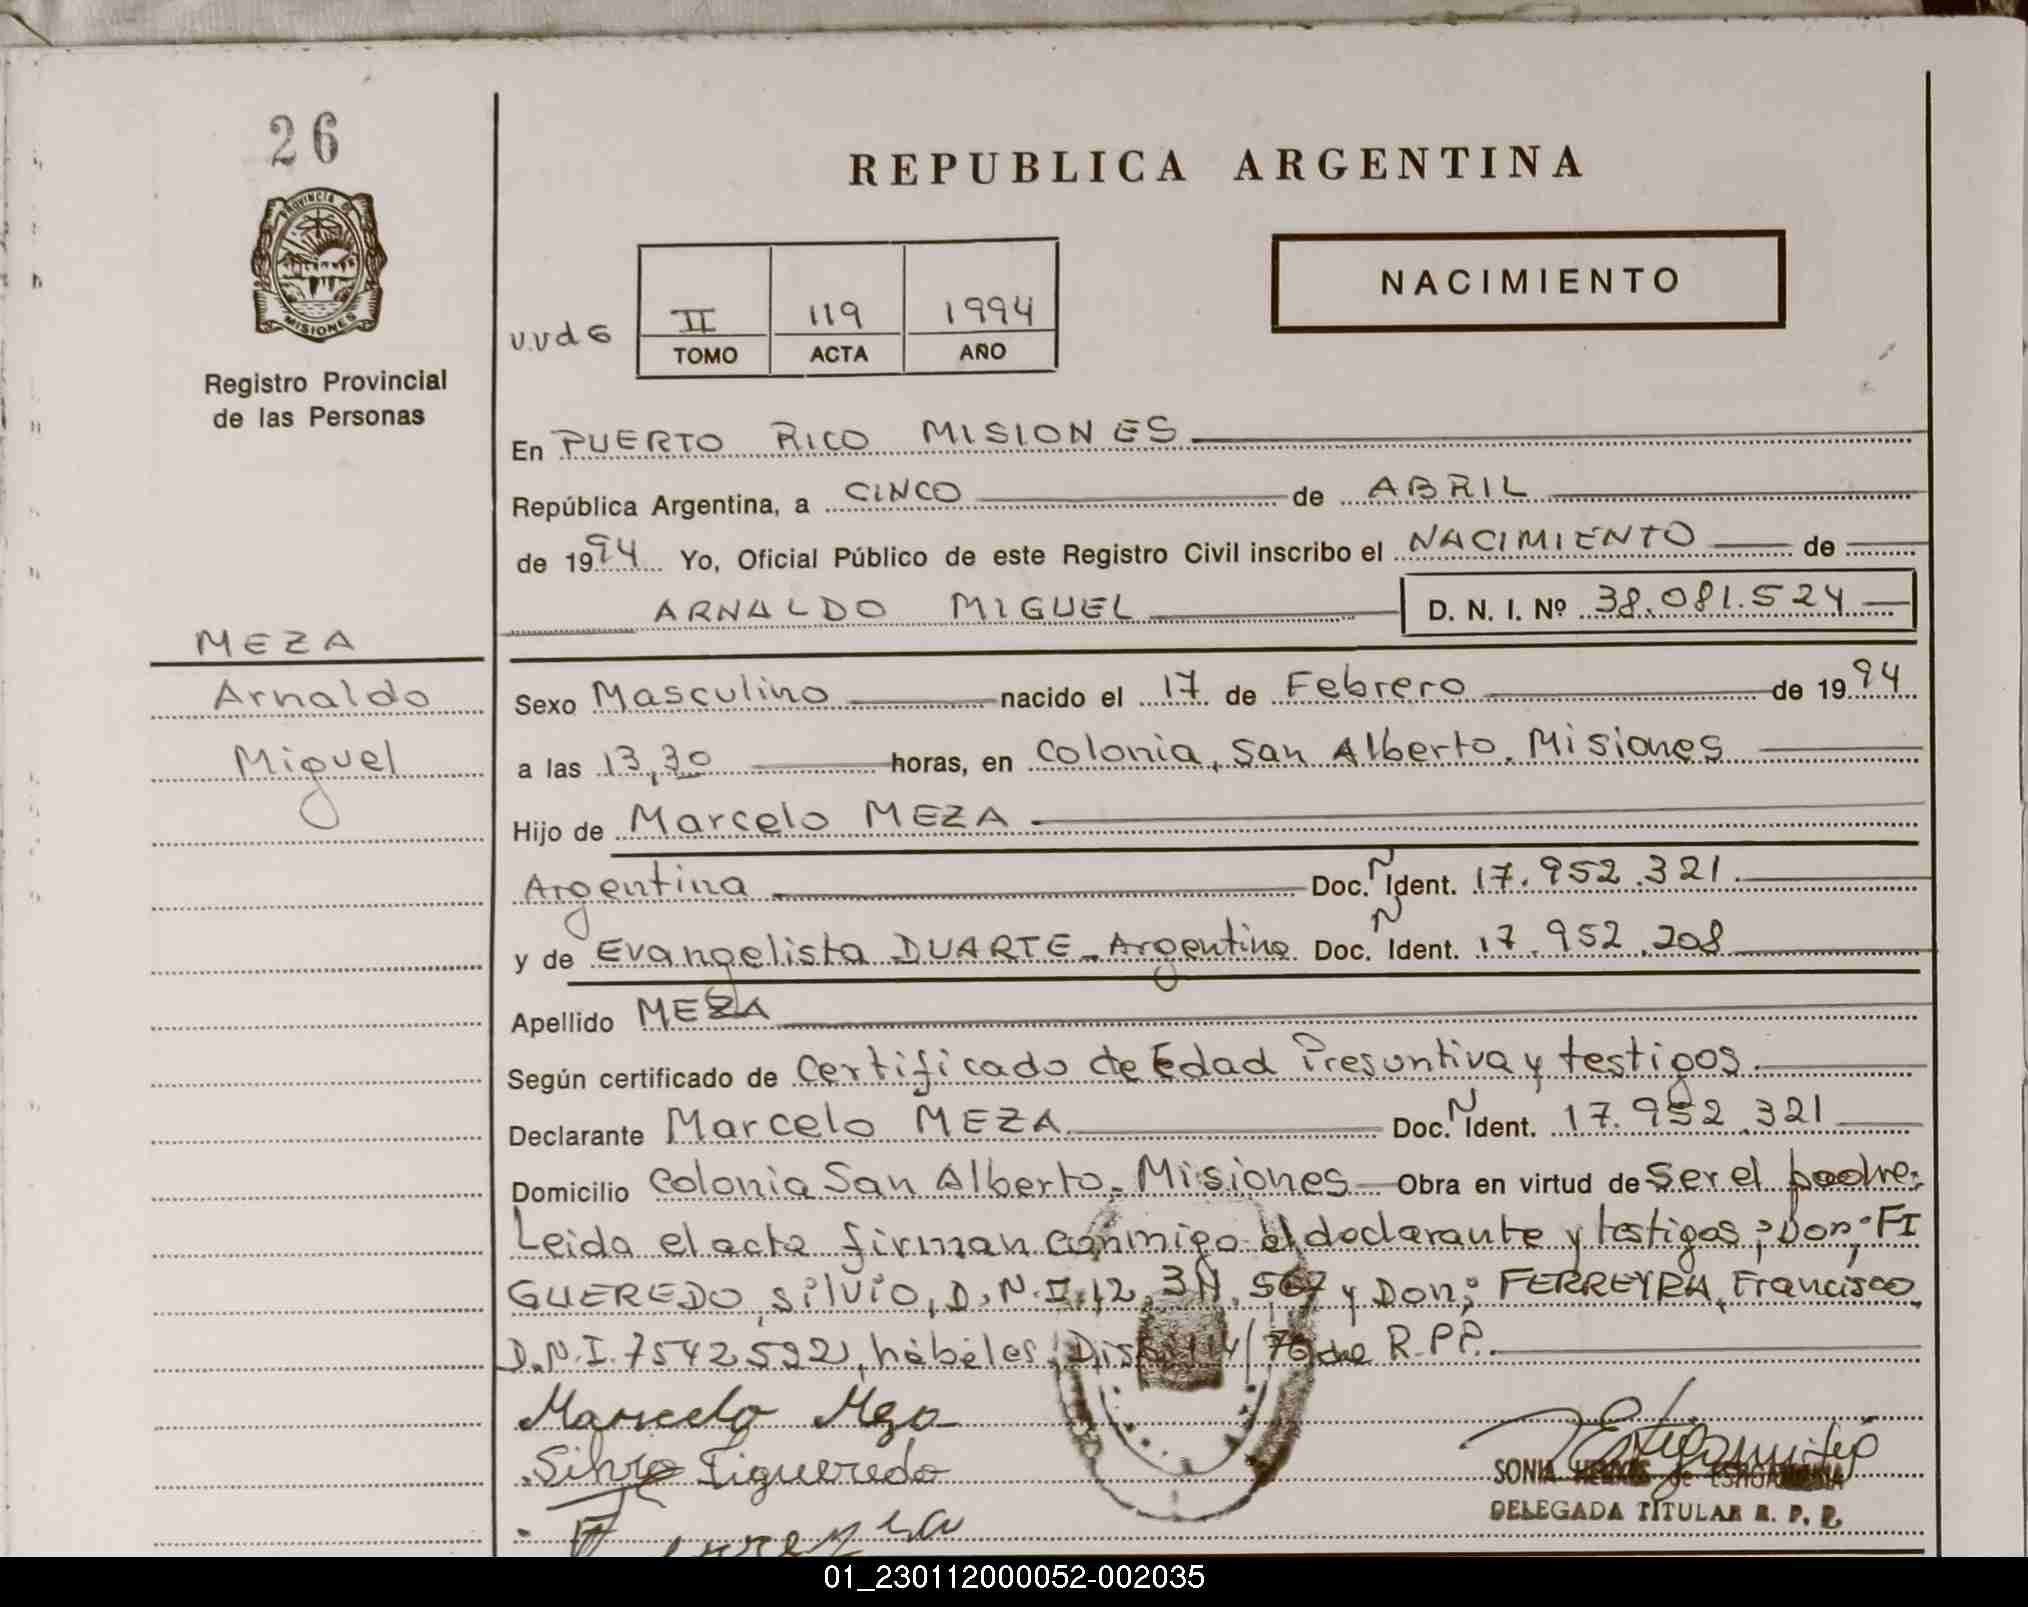 26
PROVINCIA DE
MISIONES
Registro Provincial
de las Personas
REPUBLICA ARGENTINA
NACIMIENTO
II 119 1994
TOMO ACTA AÑO
En PUERTO RICO MISIONES
República Argentina, a CINCO de ABRIL
de 1994 Yo, Oficial Público de este Registro Civil inscribo el NACIMIENTO de
ARNALDO MIGUEL D. N. I. Nº 38.081.524
MEZA
Arnaldo
Miguel
Sexo Masculino nacido el 17 de Febrero de 1994
a las 13,30 horas, en Colonia, San Alberto. Misiones
Hijo de Marcelo MEZA
Argentina Doc. N Ident. 17.952.321.
y de Evangelista DUARTE - Argentina Doc. N Ident. 17.952.208
Apellido MEZA
Según certificado de Certificado de Edad Presuntiva y testigos.
Declarante Marcelo MEZA Doc. N Ident. 17.952.321
Domicilio Colonia San Alberto.- Misiones Obra en virtud de Ser el padre.
Leida el acta firman conmigo el declarante y testigos; Don; FI
GUEREDO, Silvio, D.N.I. 12. 567 y Don; FERREYRA, Francisco
D.N.I. 7542592, hábeles, 14/76 de R.P.P.
Marcelo Meza
Silvio Figueredo
SONIA de
DELEGADA TITULAR R. P. P.
01_230112000052-002035